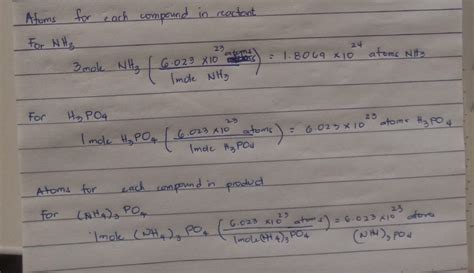 Atoms for each compound in reactant
For NH₃
3mole NH₃ (6.023 x10²³ atoms / 1mole NH₃) = 1.8069 x10²⁴ atoms NH₃
For H₃PO₄
1mole H₃PO₄ (6.023 x10²³ atoms / 1mole H₃PO₄) = 6.023 x10²³ atoms H₃PO₄
Atoms for each compound in product
For (NH₄)₃PO₄
1mole (NH₄)₃PO₄ (6.023 x10²³ atoms / 1mole(NH₄)₃PO₄) = 6.023 x10²³ atoms (NH₄)₃PO₄